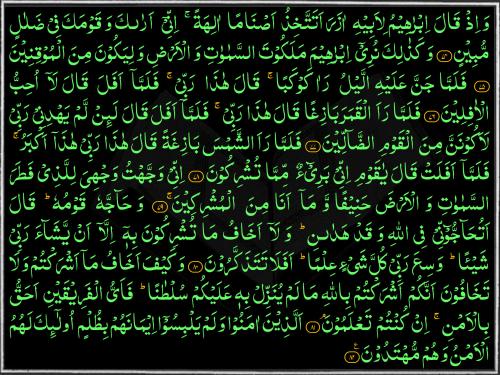 وَاِذْ قَالَ اِبْرٰهِيْمُ لِاَبِيْهِ اٰزَرَ اَتَتَّخِذُ اَصْنَامًا اٰلِهَةً ۚ اِنِّيْۤ اَرٰىكَ وَقَوْمَكَ فِيْ ضَلٰلٍ
مُّبِيْنٍ ﴿۷۴﴾ وَكَذٰلِكَ نُرِيْۤ اِبْرٰهِيْمَ مَلَكُوْتَ السَّمٰوٰتِ وَالْاَرْضِ وَلِيَكُوْنَ مِنَ الْمُوْقِنِيْنَ
﴿۷۵﴾ فَلَمَّا جَنَّ عَلَيْهِ الَّيْلُ رَاٰ كَوْكَبًا ۚ قَالَ هٰذَا رَبِّيْ ۚ فَلَمَّاۤ اَفَلَ قَالَ لَاۤ اُحِبُّ
الْاٰفِلِيْنَ ﴿۷۶﴾ فَلَمَّا رَاَ الْقَمَرَ بَازِغًا قَالَ هٰذَا رَبِّيْ ۚ فَلَمَّاۤ اَفَلَ قَالَ لَىِٕنْ لَّمْ يَهْدِنِيْ رَبِّيْ
لَاَكُوْنَنَّ مِنَ الْقَوْمِ الضَّآلِّيْنَ ﴿۷۷﴾ فَلَمَّا رَاَ الشَّمْسَ بَازِغَةً قَالَ هٰذَا رَبِّيْ هٰذَاۤ اَكْبَرُ ۚ
فَلَمَّاۤ اَفَلَتْ قَالَ يٰقَوْمِ اِنِّيْ بَرِيْٓءٌ مِّمَّا تُشْرِكُوْنَ ﴿۷۸﴾ اِنِّيْ وَجَّهْتُ وَجْهِيَ لِلَّذِيْ فَطَرَ
السَّمٰوٰتِ وَالْاَرْضَ حَنِيْفًا وَّمَاۤ اَنَا مِنَ الْمُشْرِكِيْنَ ۚ ﴿۷۹﴾ وَحَآجَّهٗ قَوْمُهٗ ؕ قَالَ
اَتُحَآجُّوْٓنِّيْ فِي اللّٰهِ وَقَدْ هَدٰىنِ ؕ وَلَاۤ اَخَافُ مَا تُشْرِكُوْنَ بِهٖۤ اِلَّاۤ اَنْ يَّشَآءَ رَبِّيْ
شَيْـًٔا ؕ وَسِعَ رَبِّيْ كُلَّ شَيْءٍ عِلْمًا ؕ اَفَلَا تَتَذَكَّرُوْنَ ﴿۸۰﴾ وَكَيْفَ اَخَافُ مَاۤ اَشْرَكْتُمْ وَلَا
تَخَافُوْنَ اَنَّكُمْ اَشْرَكْتُمْ بِاللّٰهِ مَا لَمْ يُنَزِّلْ بِهٖ عَلَيْكُمْ سُلْطٰنًا ؕ فَاَيُّ الْفَرِيْقَيْنِ اَحَقُّ
بِالْاَمْنِ ۚ اِنْ كُنْتُمْ تَعْلَمُوْنَ ۘ ﴿۸۱﴾ اَلَّذِيْنَ اٰمَنُوْا وَلَمْ يَلْبِسُوْۤا اِيْمَانَهُمْ بِظُلْمٍ اُولٰٓىِٕكَ لَهُمُ
الْاَمْنُ وَهُمْ مُّهْتَدُوْنَ ﴿۸۲﴾